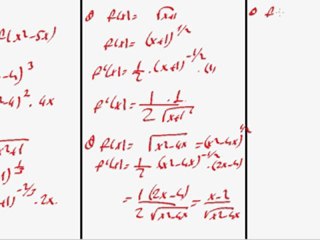 f(x²-5x)
-4)³
-4)² · 4x
x²+1
)^1/3
+1)^-2/3 · 2x
f(x) = √x+1
f(x) = (x+1)^1/2
f'(x) = 1/2 · (x+1)^-1/2 · (1)
f'(x) = 1/2 · 1/√x+1
f(x) = √x²-4x = (x²-4x)^1/2
f'(x) = 1/2 · (x²-4x)^-1/2 · (2x-4)
= 1/2 (2x-4)/√x²-4x = x-2/√x²-4x
f